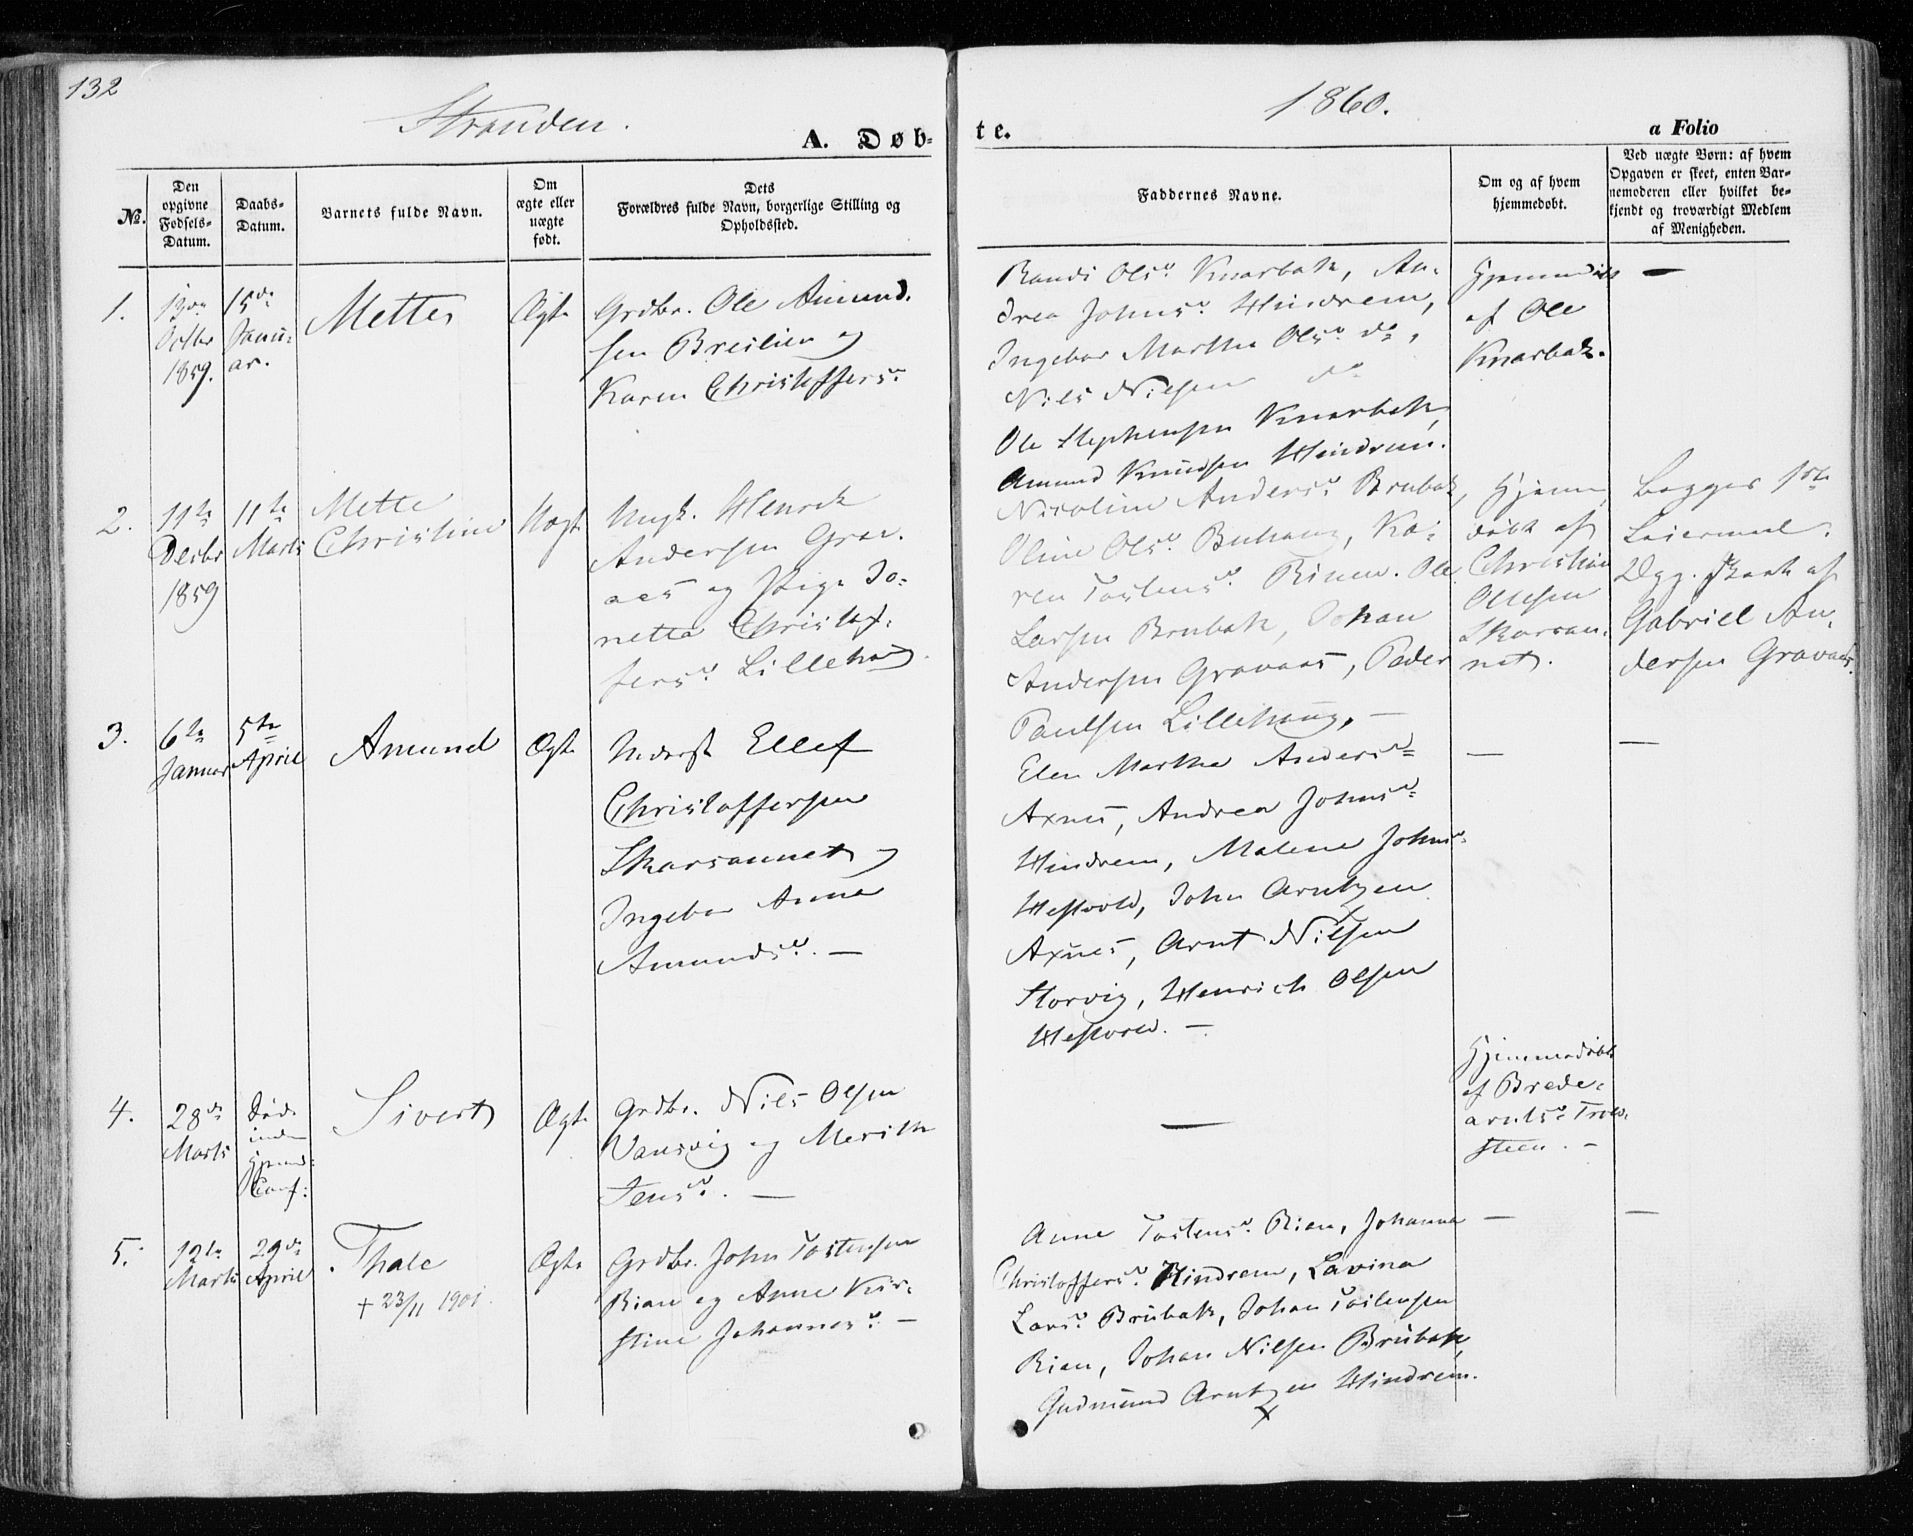 132
Stranden.
1860.
A. Døb-
te.
a Folio
No.
Den opgivne Fødsels-Datum.
Daabs-Datum.
Barnets fulde Navn.
Om ægte eller uægte født.
Dets
Forældres fulde Navn, borgerlige Stilling og
Opholdssted.
Faddernes Navne.
Om og af hvem hjemmedøbt.
Ved uægte Børn: af hvem
Opgaven er skeet, enten Bar-
nemoderen eller hvilket be-
kjendt og troværdigt Medlem
af Menigheden.
1.
1859.
15de
Janu-
ar.
Mette
Ægte
Grdbr. Ole Amund-
sen Breilien og
Karen Christoffersd.
Randi Olsd. Knarbak, An-
drea Johnsd. Hindrem,
Ingebor Martha Olsd. do,
Nils Nilsen do
Ole Stephensen Knarbak,
Amund Knudsen Hindrem.
Hjemmedøbt
af Ole
Knarbak.
—
2.
11te
Decbr
1859
11te
Marts
Mette
Christine
Uægte
Ungk. Henrik
Andersen Grav-
aas og Pige Jo-
netta Christof-
fersd. Lillehaug.
Nicoline Andersd. Brubak,
Oline Olsd. Buhaug, Ka-
ren Tostensd. Rinen. Ole
Larsen Brubak, Johan
Andersen Gravaas, Peder
Paulsen Lillehaug. —
Hjemme
døbt af
Christian
Ollesen
Skarsau-
net.
Begges 1ste
Leiermaal.
Opg. skeet af
Gabriel An-
dersen Gravaas.
3.
6te
Januar
5te
April
Amund
Ægte
Inderst Ellef
Christoffersen
Skarsaunet og
Ingebor Anna
Amundsd. —
Elen Martha Andersd.
Axnes, Andrea Johnsd.
Hindrem, Malene Johnsd.
Hestvold, John Arntzen
Axnes, Arnt Nilsen
Storvig, Henrich Olsen
Hestvold. —
—
—
4.
28de
Marts
Død
inden
Hjemd:
Conf:
Sivert
Ægte
Grdbr. Nils Olsen
Vansvig og Merith
Jensd. —
—
Hjemmedøbt
af Brede-
arntsd. Trold-
steen. —
5.
12te
Marts
29de
April
Thale
+ 23/11 1901.
Ægte
Grdbr. John Tostensen
Rian og Anne Kir-
stine Johannesd. —
Anne Tostensd. Rian, Johanna
Christoffersd. Hindrem, Lavina
Larsd. Brubak, Johan Tostensen
Rian, Johan Nilsen Brubak,
Gudmund Arntzen Hindrem.
—
—